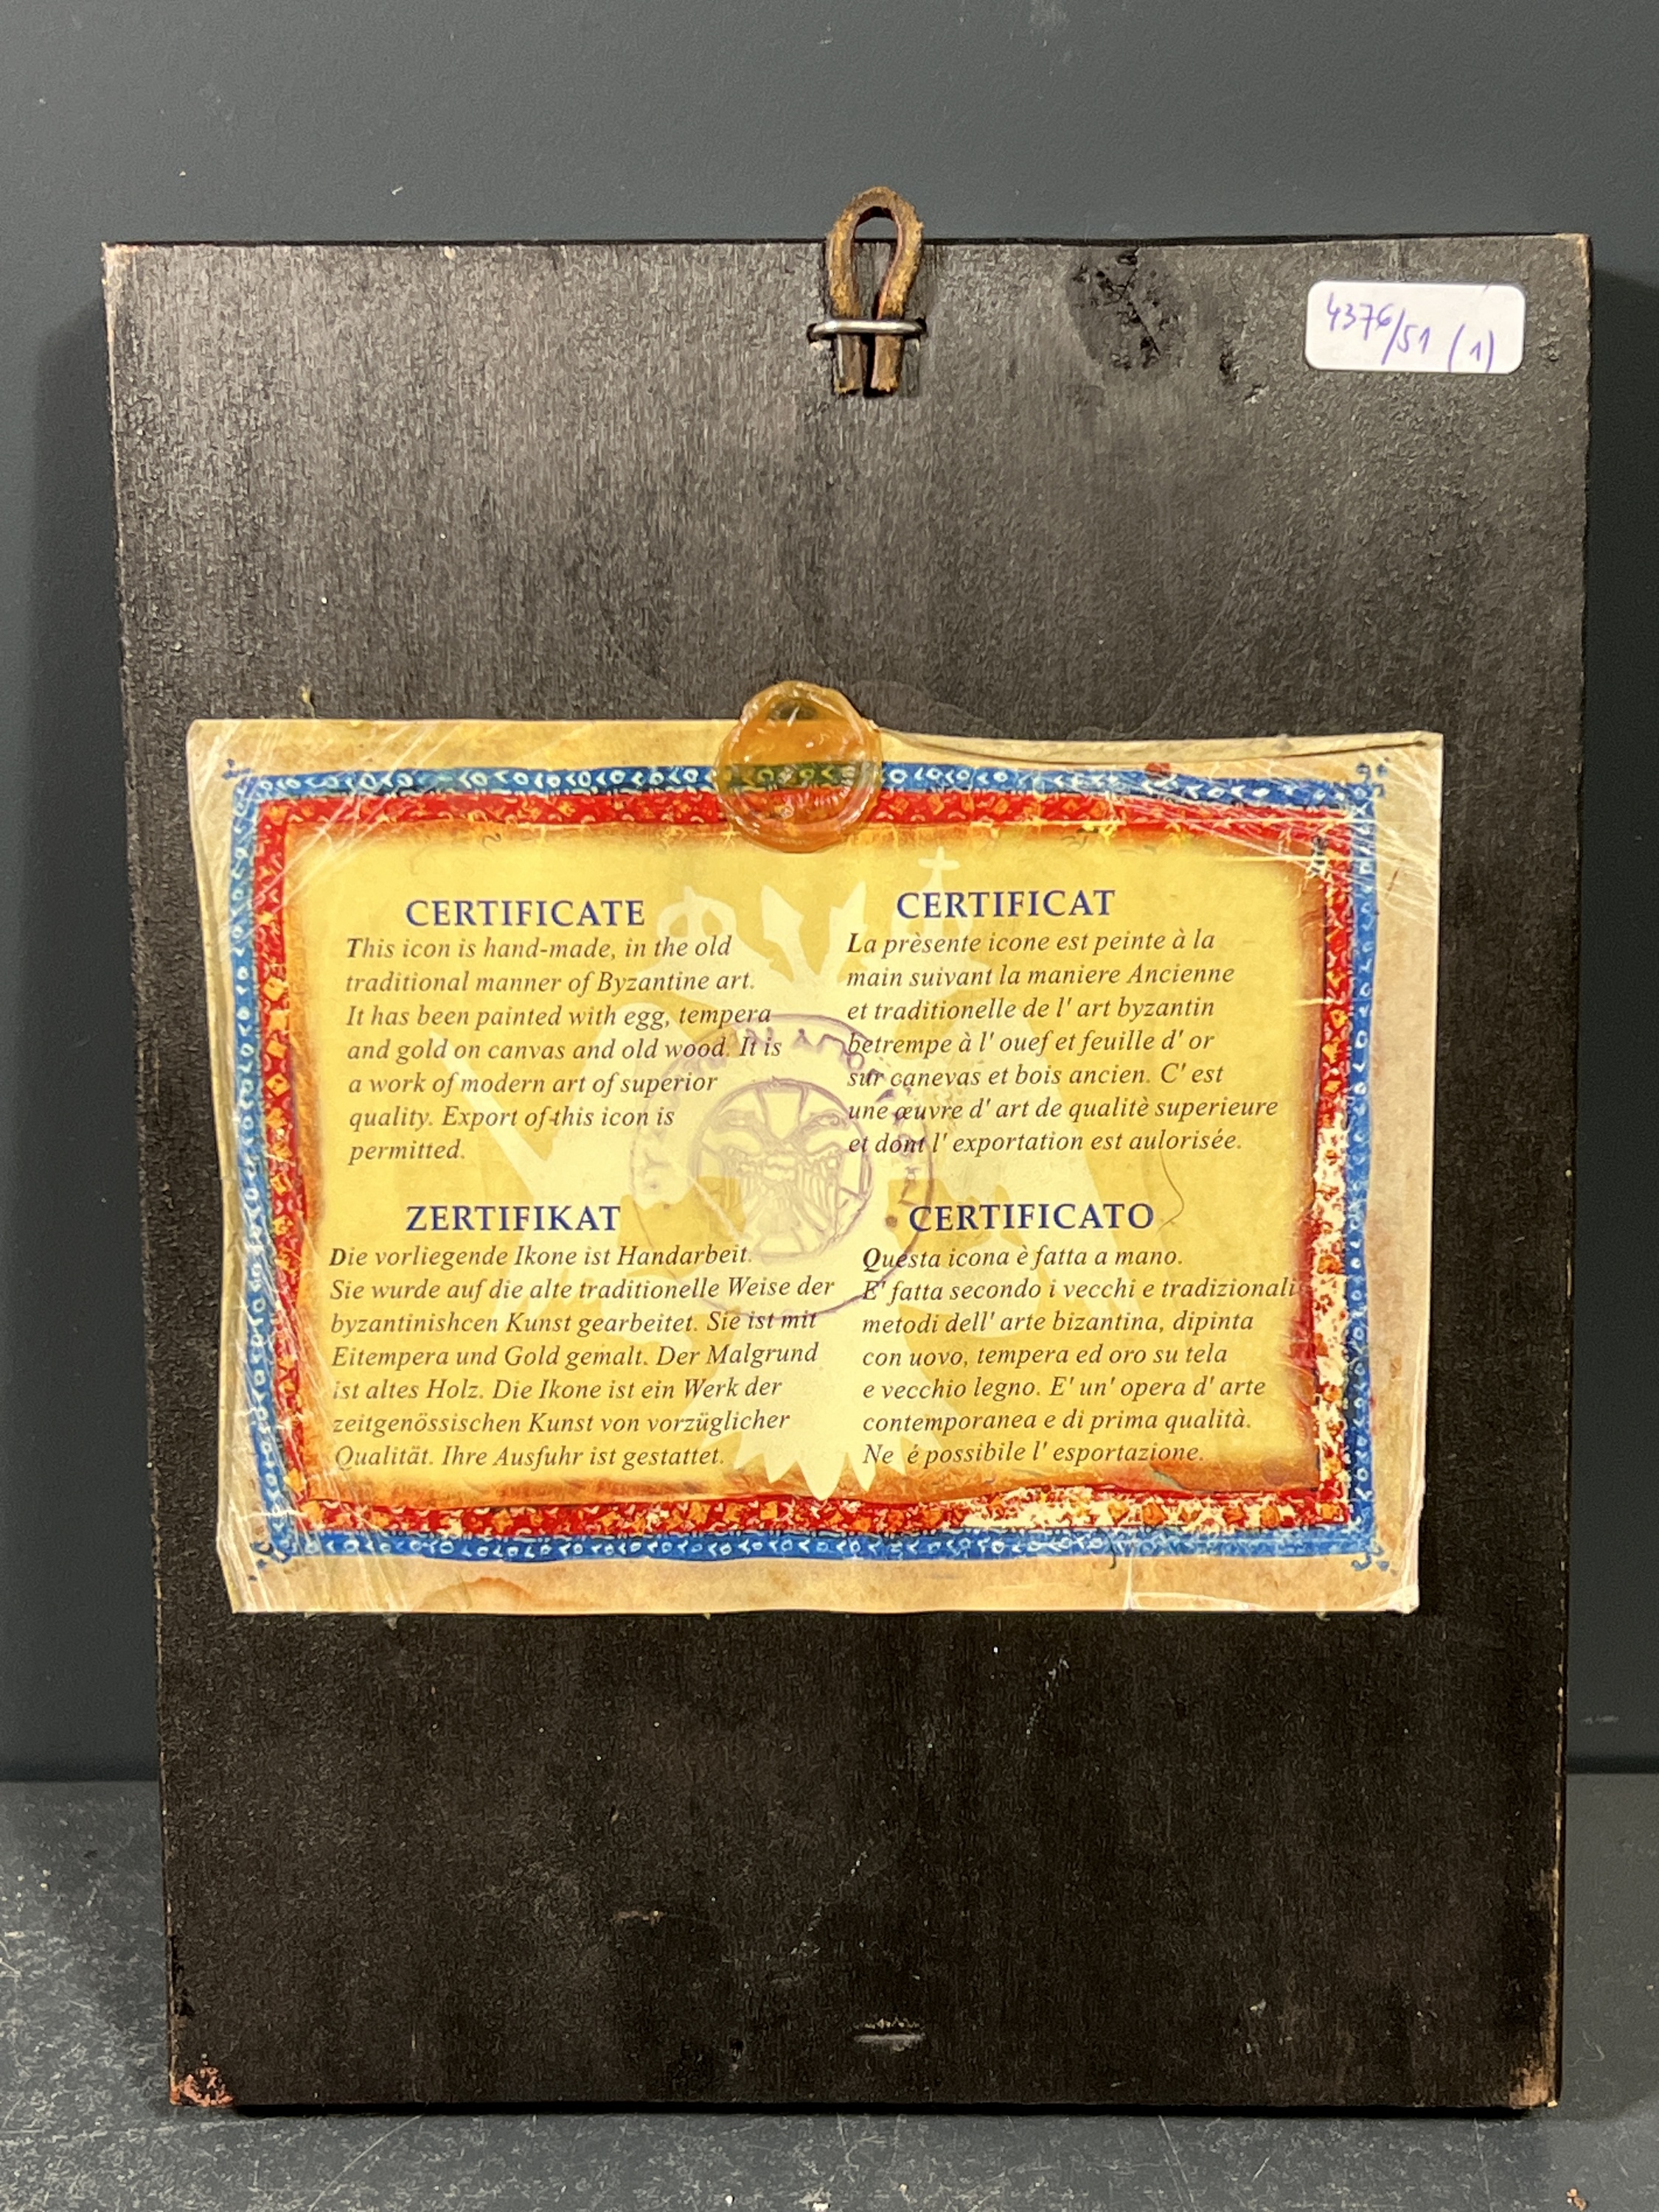 4376/51 (1)
CERTIFICATE
This icon is hand-made, in the old
traditional manner of Byzantine art.
It has been painted with egg, tempera
and gold on canvas and old wood. It is
a work of modern art of superior
quality. Export of this icon is
permitted.
CERTIFICAT
La prèsente icone est peinte à la
main suivant la maniere Ancienne
et traditionelle de l' art byzantin
betrempe à l' ouef et feuille d' or
sur canevas et bois ancien. C' est
une œuvre d' art de qualitè superieure
et dont l' exportation est aulorisée.
ZERTIFIKAT
Die vorliegende Ikone ist Handarbeit.
Sie wurde auf die alte traditionelle Weise der
byzantinishcen Kunst gearbeitet. Sie ist mit
Eitempera und Gold gemalt. Der Malgrund
ist altes Holz. Die Ikone ist ein Werk der
zeitgenössischen Kunst von vorzüglicher
Qualität. Ihre Ausfuhr ist gestattet.
CERTIFICATO
Questa icona è fatta a mano.
E' fatta secondo i vecchi e tradizionali
metodi dell' arte bizantina, dipinta
con uovo, tempera ed oro su tela
e vecchio legno. E' un' opera d' arte
contemporanea e di prima qualità.
Ne é possibile l' esportazione.